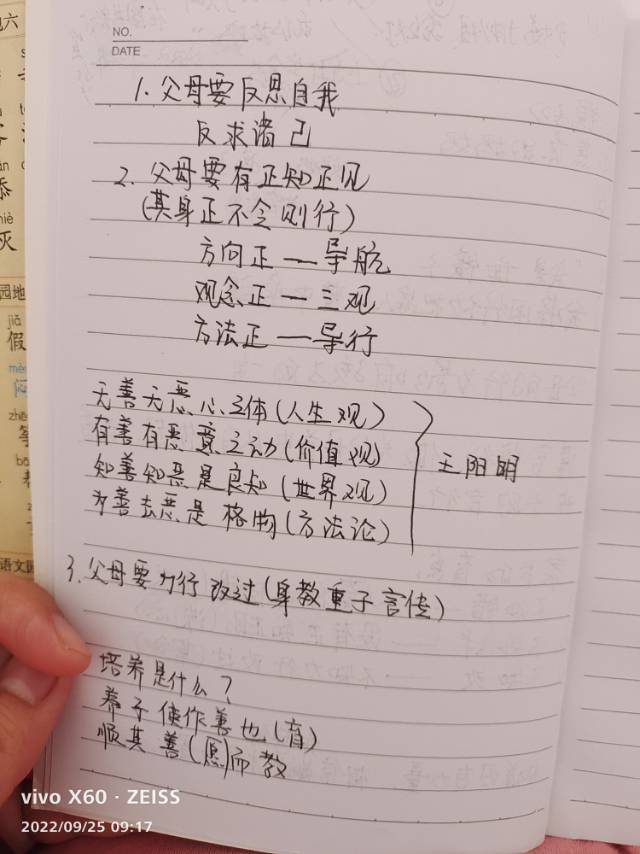 NO.
DATE
1. 父母要反思自我
反求诸己
2. 父母要有正知正见
(其身正不令则行)
方向正一导航
观念正一三观
方法正一导行
无善无恶心之体(人生观)
有善有恶意之动(价值观)
知善知恶是良知(世界观)
为善去恶是格物(方法论)
王阳明
3. 父母要力行改过(身教重于言传)
培养是什么?
养子使作善也(育)
顺其善(愿)而教
园地
jiǎ
假
语文园
vivo X60 · ZEISS
2022/09/25 09:17